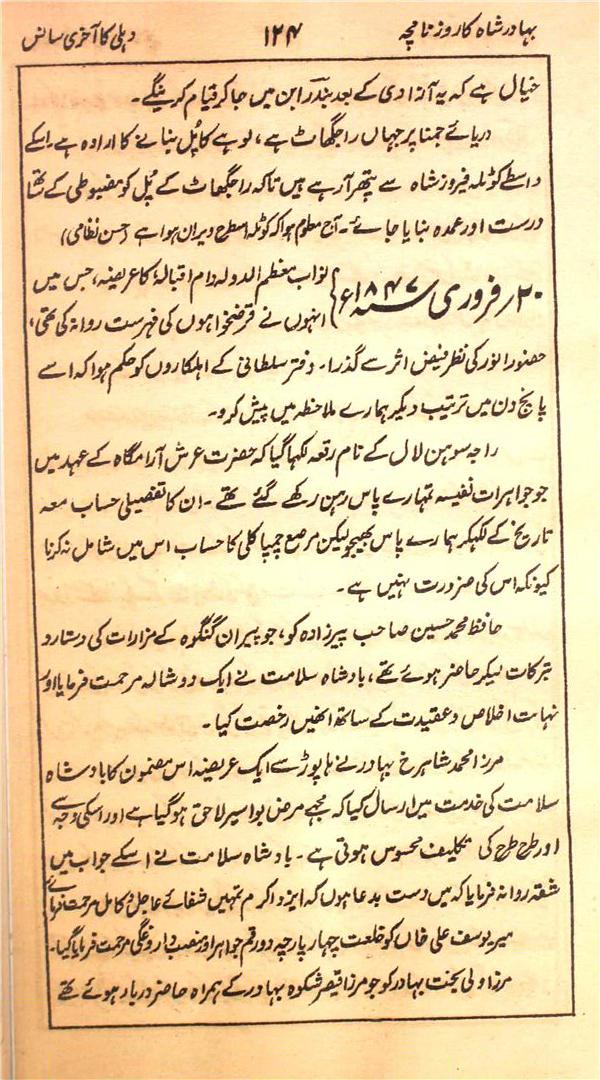 بہادر شاہ کا روزنامچہ ۱۲۴ دہلی کا آخری سانس
خیال ہے کہ یہ آزادی کے بعد بندرابن میں جا کر قیام کرینگے۔
دریائے جمنا پر جہاں راجگھاٹ ہے، لوہے کا پُل بنانے کا ارادہ ہے۔ اسکے
واسطے کوٹلہ فیروز شاہ سے پتھر آرہے ہیں تاکہ راجگھاٹ کے پُل کو مضبوطی کے ساتھ
درست اور عمدہ بنایا جائے۔ آج معلوم ہوا کہ کوٹلہ اسطرح ویران ہوا ہے (حسن نظامی)
۲۰؍ فروری ۱۸۴۷ء} نواب معظم الدولہ دام اقبالہٗ کا عریضہ، جس میں
انہوں نے قرضخواہوں کی فہرست روانہ کی تھی،
حضور انور کی نظر فیض اثر سے گذرا۔ دفتر سلطانی کے اہلکاروں کو حکم ہوا کہ اسے
پانچ دن میں ترتیب دیکر ہمارے ملاحظہ میں پیش کرو۔
راجہ سوہن لال کے نام رقعہ لکھا گیا کہ حضرت عرش آرامگاہ کے عہد میں
جو جواہرات نفیسہ تمہارے پاس رہن رکھے گئے تھے۔ ان کا تفصیلی حساب معہ
تاریخ کے لکھکر ہمارے پاس بھیجو لیکن مرصع چمپا کلی کا حساب اس میں شامل نہ کرنا
کیونکہ اس کی ضرورت نہیں ہے۔
حافظ محمد حسین صاحب پیرزادہ کو، جو پیران گنگوہ کے مزارات کی دستار و
تبرکات لیکر حاضر ہوئے تھے، بادشاہ سلامت نے ایک دوشالہ مرحمت فرمایا اور
نہایت اخلاص و عقیدت کے ساتھ انھیں رخصت کیا۔
مرزا محمد شاہرخ بہادر نے ہاپوڑ سے ایک عریضہ اس مضمون کا بادشاہ
سلامت کی خدمت میں ارسال کیا کہ مجھے مرض بواسیر لاحق ہوگیا ہے اور اسکی وجہ سے
اور طرح طرح کی تکلیف محسوس ہوتی ہے۔ بادشاہ سلامت نے اسکے جواب میں
شقہ روانہ فرمایا کہ میں دست بدعا ہوں کہ ایزد اکرم تمہیں شفائے عاجل و کامل مرحمت فرمائے
میر یوسف علی خاں کو خلعت چہار پارچہ دو رقم جواہر اور منصب داروغگی مرحمت فرمایا گیا۔
مرزا ولی بخت بہادر کو جو مرزا قیصر شکوہ بہادر کے ہمراہ حاضر دربار ہوئے تھے